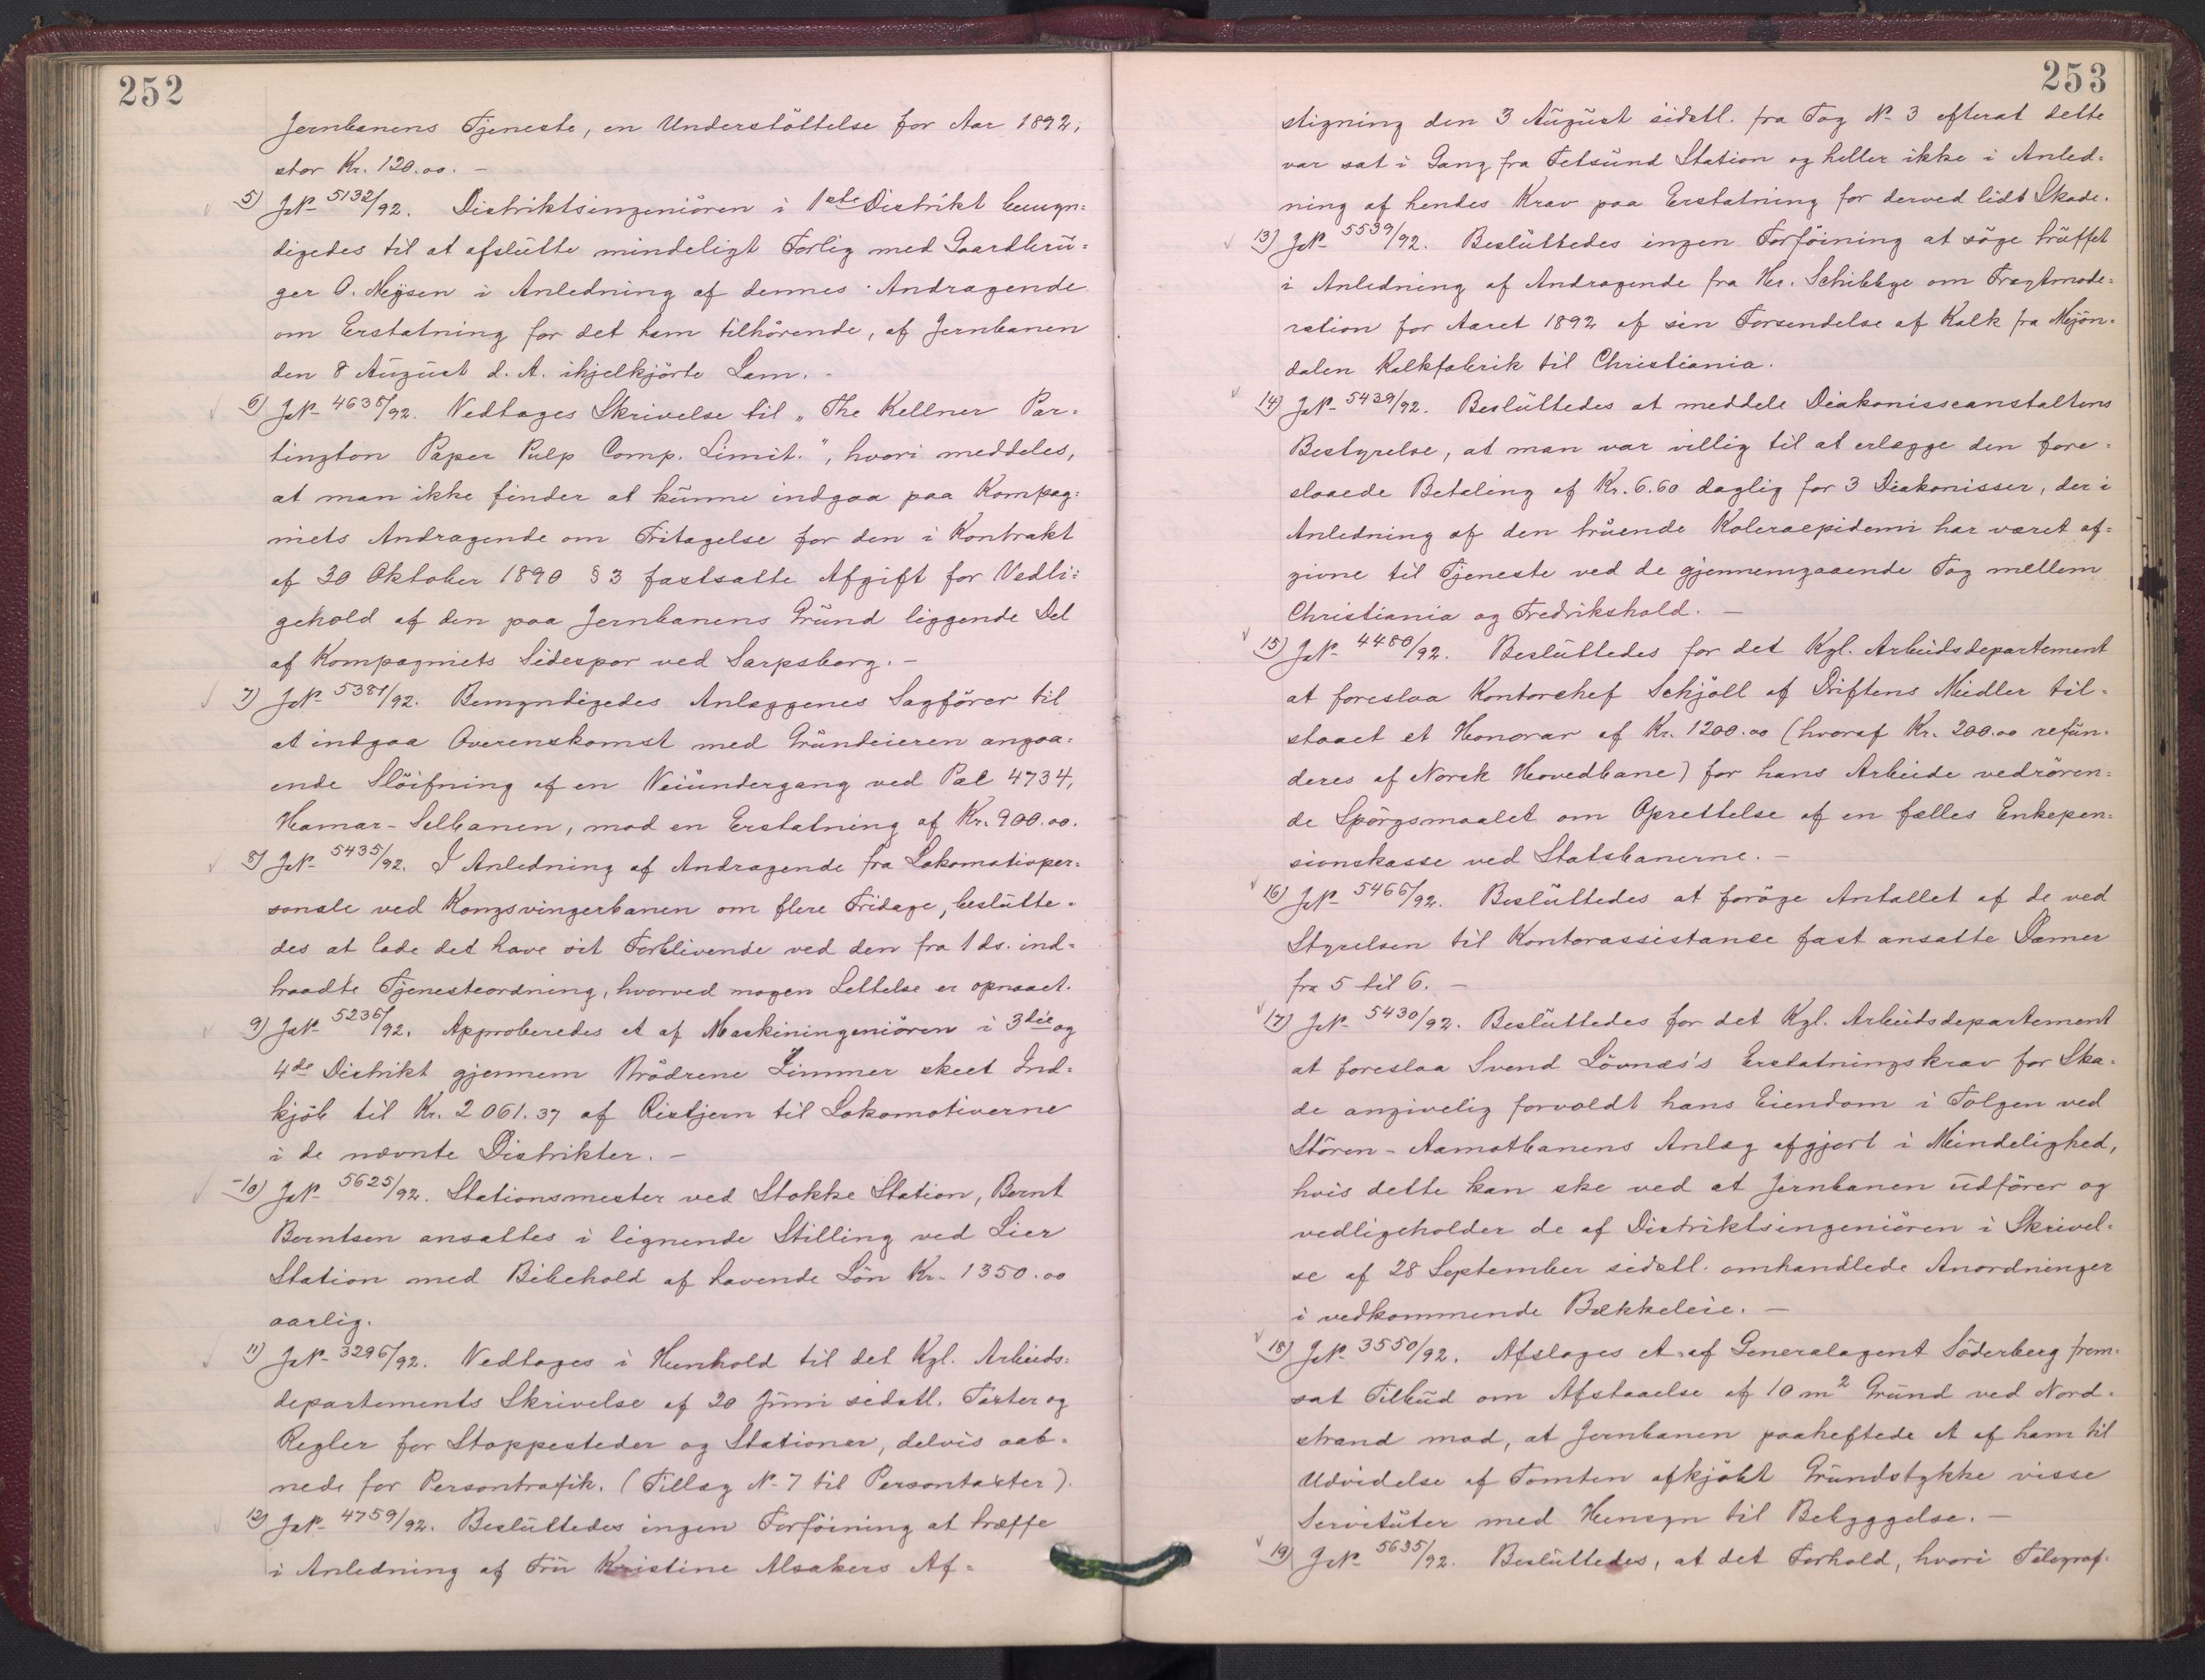 252
Jernbanens Tjeneste, en Understöttelse for Aar 1892,
stor Kr. 120.00. -
5) JN- 5132/92. Distriktsingeniören i 1ste Distrikt bemyn=
digedes til at afslutte mindeligt Forlig med Gaardbru=
ger O. Mysen i Anledning af dennes Andragende
om Erstatning for det ham tilhörende, af Jernbanen
den 8 August d. A. ihjelkjörte Lam. -
6) JN- 4635/92. Vedtoges Skrivelse til "The Kellner Par=
tington Paper Pulp Comp. Limit.", hvori meddeles,
at man ikke finder at kunne indgaa paa Kompag=
niets Andragende om Fritagelse for den i Kontrakt
af 30 Oktober 1890 § 3 fastsatte Afgift for Vedli=
gehold af den paa Jernbanens Grund liggende Del
af Kompagniets Sidespor ved Sarpsborg. -
7) JN- 5381/92. Bemyndigedes Anlæggenes Sagförer til
at indgaa Overenskomst med Grundeieren angaa=
ende Slöifning af en Veiundergang ved Pæl 4734,
Hamar-Selbanen, mod en Erstatning af Kr. 900.00.
8) JN- 5435/92. I Anledning af Andragende fra Lokomotivper=
sonale ved Kongsvingerbanen om flere Fridage, beslutte=
des at lade det have sit Forblivende ved den fra 1 ds. ind=
traadte Tjenesteordning, hvorved nogen Lettelse er opnaaet.
9) JN- 5236/92. Approberedes et af Maskiningeniören i 3die og
4de Distrikt gjennem Brödrene Zimmer skeet Ind=
kjöb til Kr. 2061.37 af Ristjern til Lokomotiverne
i de nævnte Distrikter. -
10) JN- 5625/92. Stationsmester ved Stokke Station, Bernt
Berntsen ansattes i lignende Stilling ved Lier
Station med Bibehold af havende Lön Kr. 1350.00
aarlig.
11) JN- 3296/92. Vedtoges i Henhold til det Kgl. Arbeids=
departements Skrivelse af 20 Juni sidstl. Taxter og
Regler for Stoppesteder og Stationer, delvis aab=
nede for Persontrafik. (Tillæg N- 7 til Persontaxter).
12) JN- 4759/92. Besluttedes ingen Forföining at træffe
i Anledning af Fru Kristine Alsakers Af=
253
stigning den 3 August sidstl. fra Tog N- 3 efterat dette
var sat i Gang fra Fetsund Station og heller ikke i Anled=
ning af hendes Krav paa Erstatning for derved lidt Skade.
13) JN- 5539/92. Besluttedes ingen Forföining at söge truffet
i Anledning af Andragende fra Hr. Schibbye om Fragtmode=
ration for Aaret 1892 af sin Forsendelse af Kalk fra Mjön=
dalen Kalkfabrik til Christiania.
14) JN- 5439/92. Besluttedes at meddele Diakonisseanstaltens
Bestyrelse, at man var villig til at erlægge den fore=
slaaede Betaling af Kr. 6.60 daglig for 3 Diakonisser, der i
Anledning af den truende Koleraepidemi har været af=
givne til Tjeneste ved de gjennemgaaende Tog mellem
Christiania og Fredrikshald. -
15) JN- 4480/92. Besluttedes for det Kgl. Arbeidsdepartement
at foreslaa Kontorchef Schjöll af Driftens Midler til=
staaet et Honorar af Kr. 1200.00 (hvoraf Kr. 200.00 refun=
deres af Norsk Hovedbane) for hans Arbeide vedrören=
de Spörgsmaalet om Oprettelse af en fælles Enkepen=
sionskasse ved Statsbanerne. -
16) JN- 5466/92. Besluttedes at foröge Antallet af de ved
Styrelsen til Kontorassistanse fast ansatte Damer
fra 5 til 6. -
17) JN- 5430/92. Besluttedes for det Kgl. Arbeidsdepartement
at foreslaa Svend Lövnæs's Erstatningskrav for Ska=
de angivelig forvoldt hans Eiendom i Tolgen ved
Stören-Aamotbanens Anlæg afgjort i Mindelighed,
hvis dette kan ske ved at Jernbanen udförer og
vedligeholder de af Distriktsingeniören i Skrivel=
se af 28 September sidstl. omhandlede Anordninger
i vedkommende Bækkeleie. -
18) JN- 3550/92. Afsloges et af Generalagent Söderberg frem=
sat Tilbud om Afstaaelse af 10 m2 Grund ved Nord=
strand mod, at Jernbanen paaheftede et af ham til
Udvidelse af Tomten afkjöbt Grundstykke visse
Servituter med Hensyn til Bebyggelse. -
19) JN- 5635/92. Besluttedes, at det Forhold, hvori Telegraf=